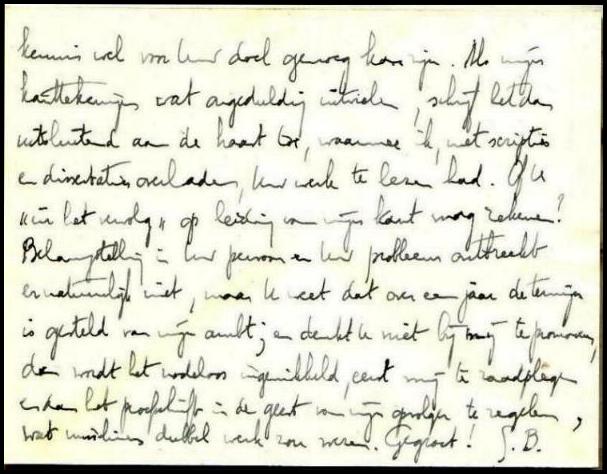 kennis wel voor Uw doel genoeg kan zijn. Als mijn
kanttekeningen wat ongeduldig uitvielen, schrijf het dan
uitsluitend aan de haast toe, waarmee ik, met scripties
en dissertaties overladen, Uw werk te lezen had. Of U
"in het vervolg" op leiding van mijn kant mag rekenen?
Belangstelling in Uw persoon en Uw probleem ontbreekt
er natuurlijk niet, maar U weet dat over een jaar de termijn
is gesteld van mijn ambt; en denkt U niet bij mij te promoveren,
dan wordt het nodeloos ingewikkeld, eerst mij te raadplegen
en dan het proefschrift in de geest van mijn opvolger te regelen,
wat misschien dubbel werk zou wezen. Gegroet! G. B.